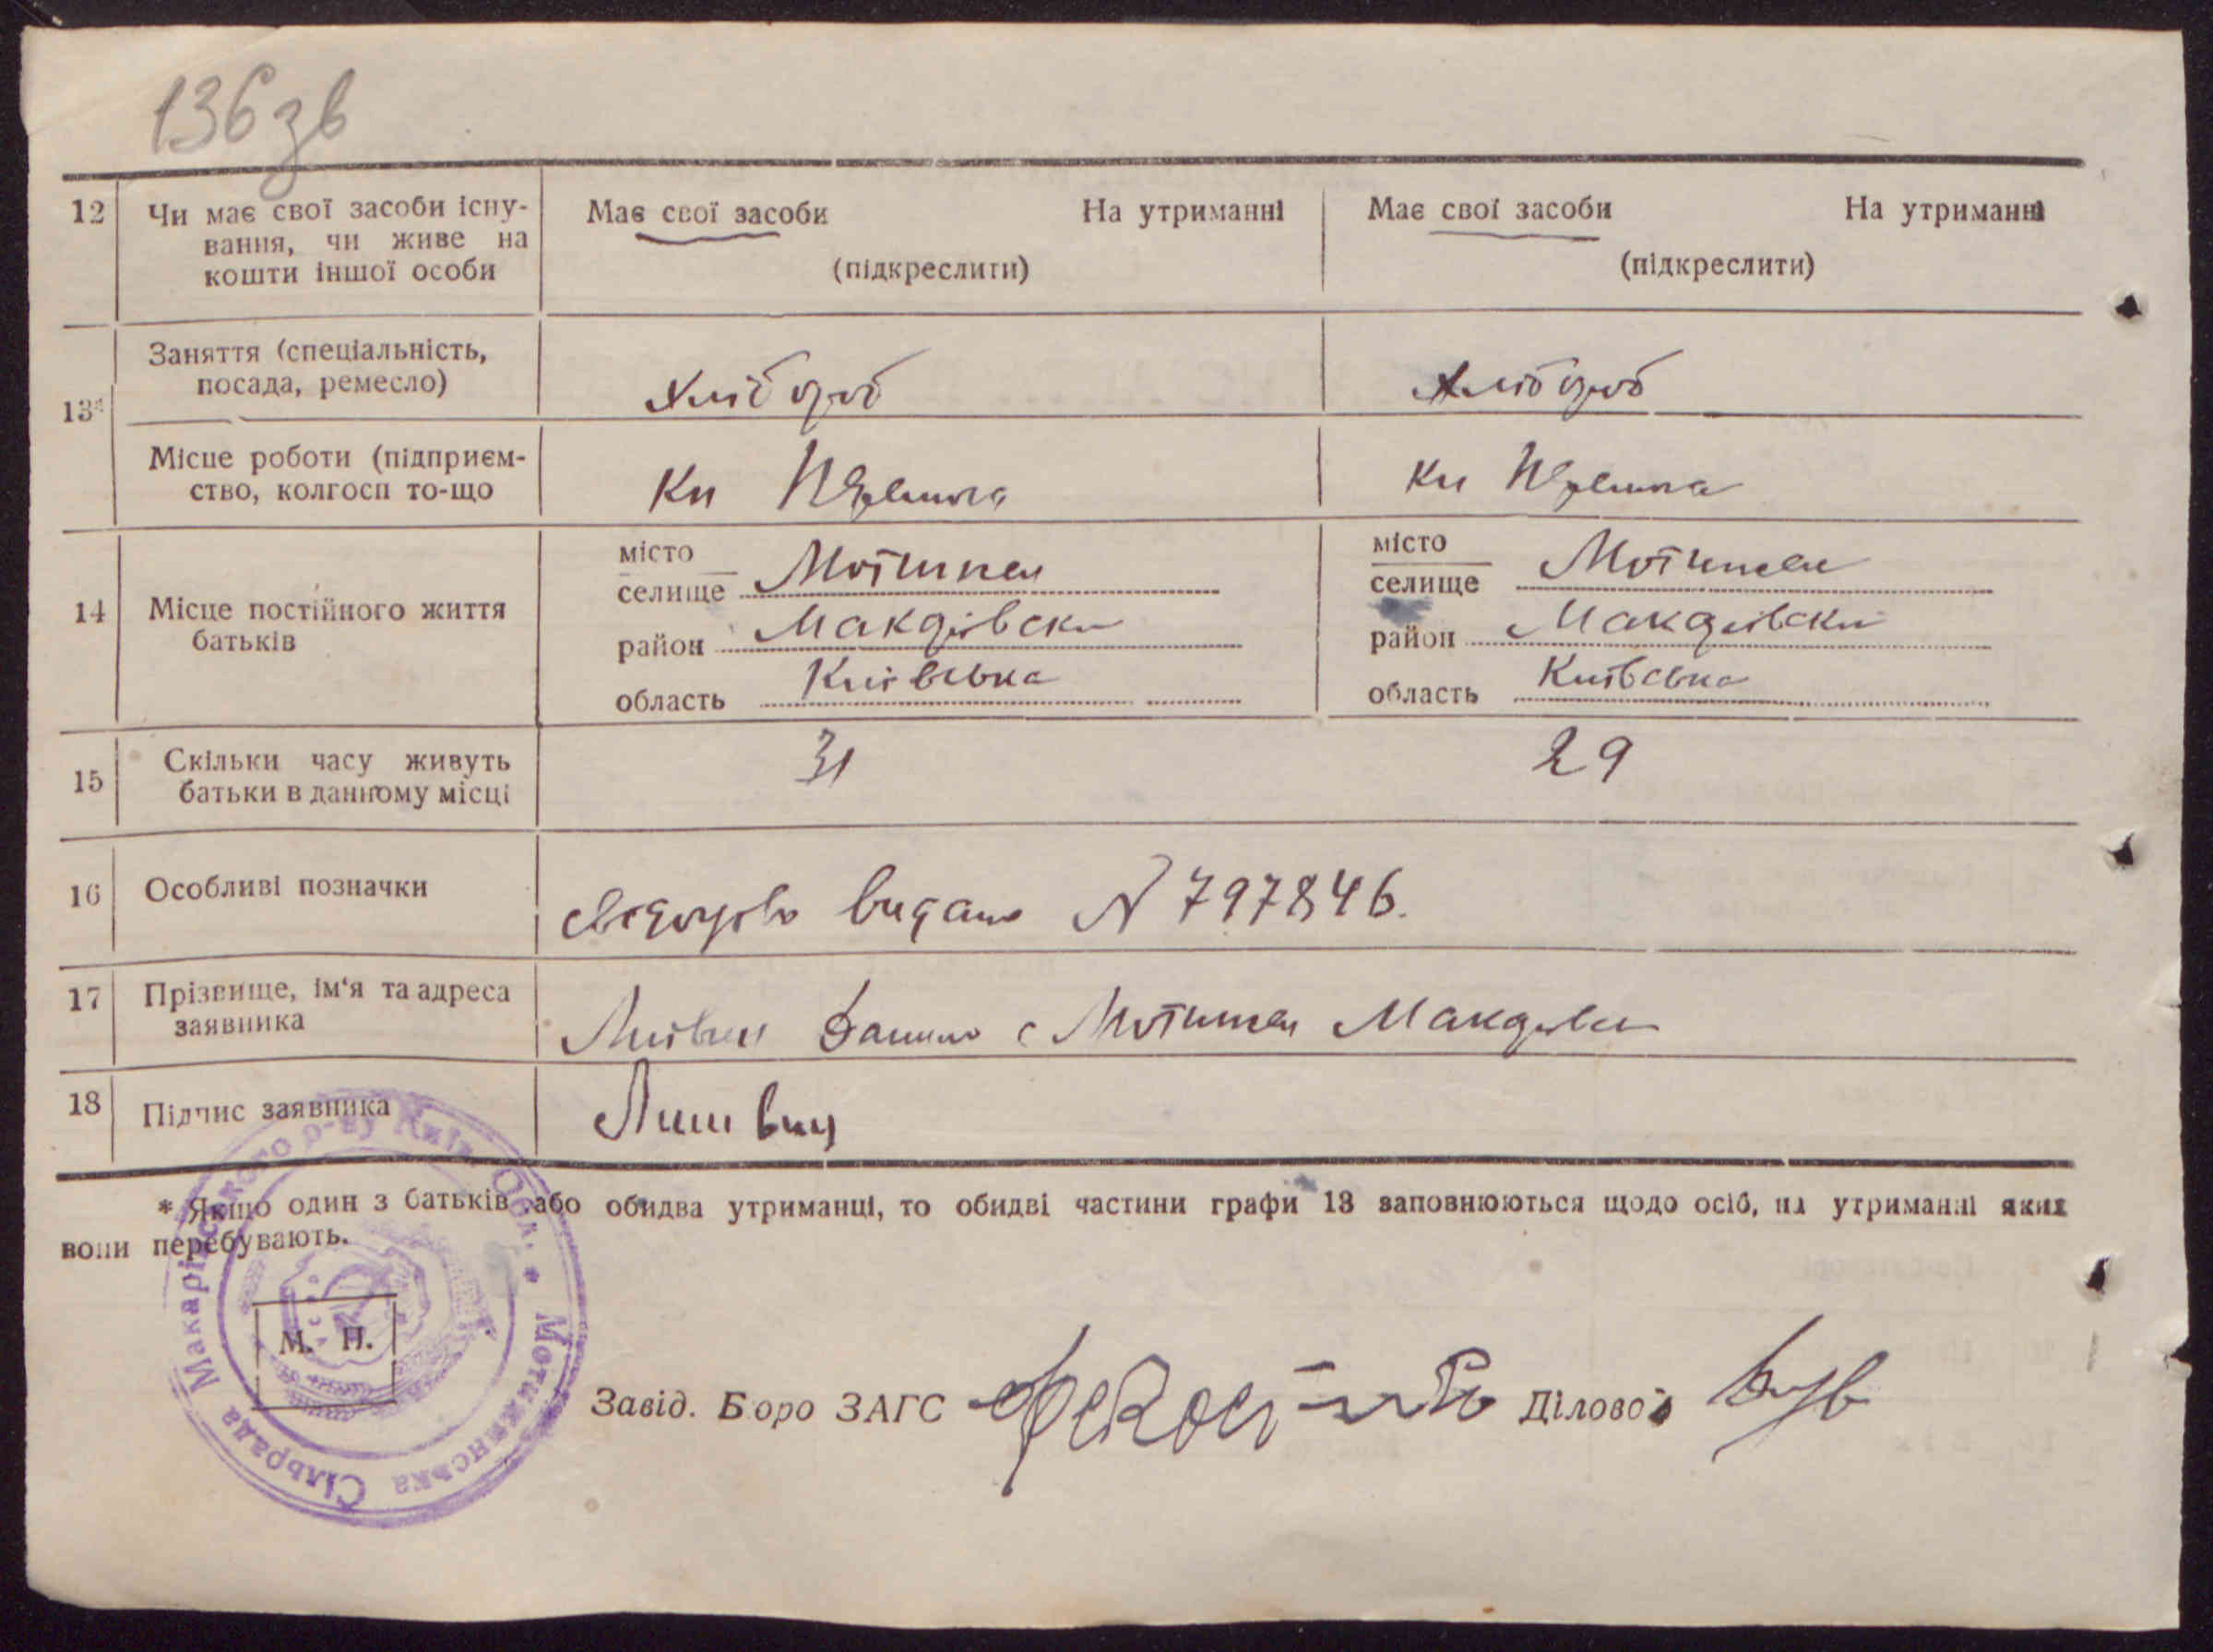 136 зв
12 Чи має свої засоби існу- Має свої засоби На утриманні Має свої засоби На утриманні
вання, чи живе на
кошти іншої особи (підкреслити) (підкреслити)
Заняття (спеціальність,
посада, ремесло) Хлібороб Хлібороб
13*
Місце роботи (підприєм-
ство, колгосп то-що Кп Кп
місто місто
селище Мотижен селище Мотижен
14 Місце постійного життя
батьків район Макарівски район Макарівски
область Київська область Київська
15 Скільки часу живуть 31 29
батьки в данному місці
16 Особливі позначки свідоцтво видано N 797846.
17 Прізвище, ім'я та адреса
заявника Литвин Данило с Мотижен Макарівск
18 Підпис заявника Литвин
* Якщо один з батьків або обидва утриманці, то обидві частини графи 13 заповнюються щодо осіб, на утриманні яких
вони перебувають.
М. П.
Завід. Бюро ЗАГС Діловод
Мотижинська Сільрада Макарівського р-ну Київ. Обл. *